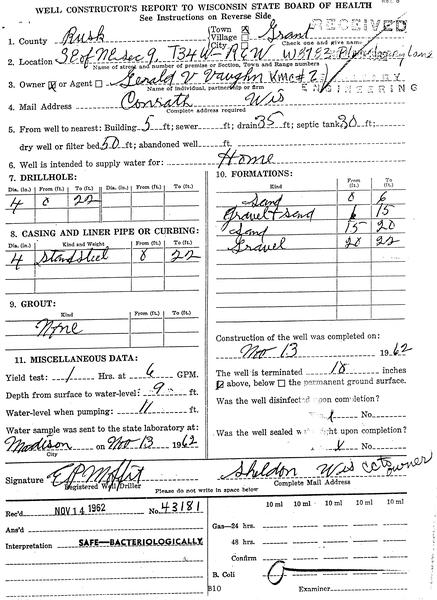 WELL CONSTRUCTOR'S REPORT TO WISCONSIN STATE BOARD OF HEALTH
See Instructions on Reverse Side
1. County Rusk Town Village City Grant
Check one and give name
RECEIVED
2. Location SE of NE sec 9, T34N-R6W W5952
Name of street and number of premise or Section, Town and Range numbers
3. Owner or Agent Gerald V Vaughn
Name of individual, partnership or firm
ENGINEERING
4. Mail Address Conrath Wis
Complete address required
5. From well to nearest: Building 5 ft; sewer ft; drain 35 ft; septic tank 30 ft;
dry well or filter bed 50 ft; abandoned well ft.
6. Well is intended to supply water for: Home
7. DRILLHOLE:
Dia. (in.) From (ft.) To (ft.) Dia. (in.) From (ft.) To (ft.)
4 0 22
8. CASING AND LINER PIPE OR CURBING:
Dia. (in.) Kind and Weight From (ft.) To (ft.)
4 Stand Steel 0 22
9. GROUT:
Kind From (ft.) To (ft.)
None
11. MISCELLANEOUS DATA:
Yield test: 1 Hrs. at 6 GPM.
Depth from surface to water-level: 9 ft.
Water-level when pumping: 11 ft.
Water sample was sent to the state laboratory at:
Madison on Nov 13 1962
City
10. FORMATIONS:
Kind From (ft.) To (ft.)
Sand 0 6
Gravel + Sand 6 15
Sand 15 20
Gravel 20 22
Construction of the well was completed on:
Nov 13 1962
The well is terminated 18 inches
above, below the permanent ground surface.
Was the well disinfected upon completion?
No
Was the well sealed watertight upon completion?
x No
Signature
Registered Well Driller
Sheldon Wis
owner
Complete Mail Address
Please do not write in space below
Rec'd NOV 14 1962 No. 43181
Ans'd
Interpretation SAFE—BACTERIOLOGICALLY
10 ml 10 ml 10 ml 10 ml 10 ml
Gas—24 hrs.
48 hrs.
Confirm
B. Coli
Examiner
B10